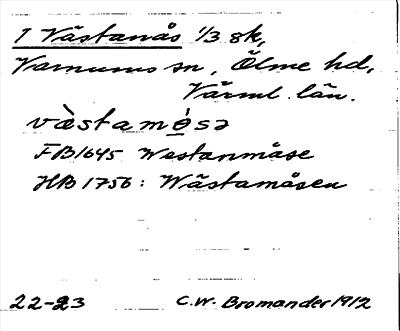 1 Västanås 1/3 sk,
Varnums sn, Ölme hd,
Värml. län.
vàstamǫ̀sə
FB1645 Westanmåse
HB 1756: Wästamåsen
22-23 C.W. Bromander 1912